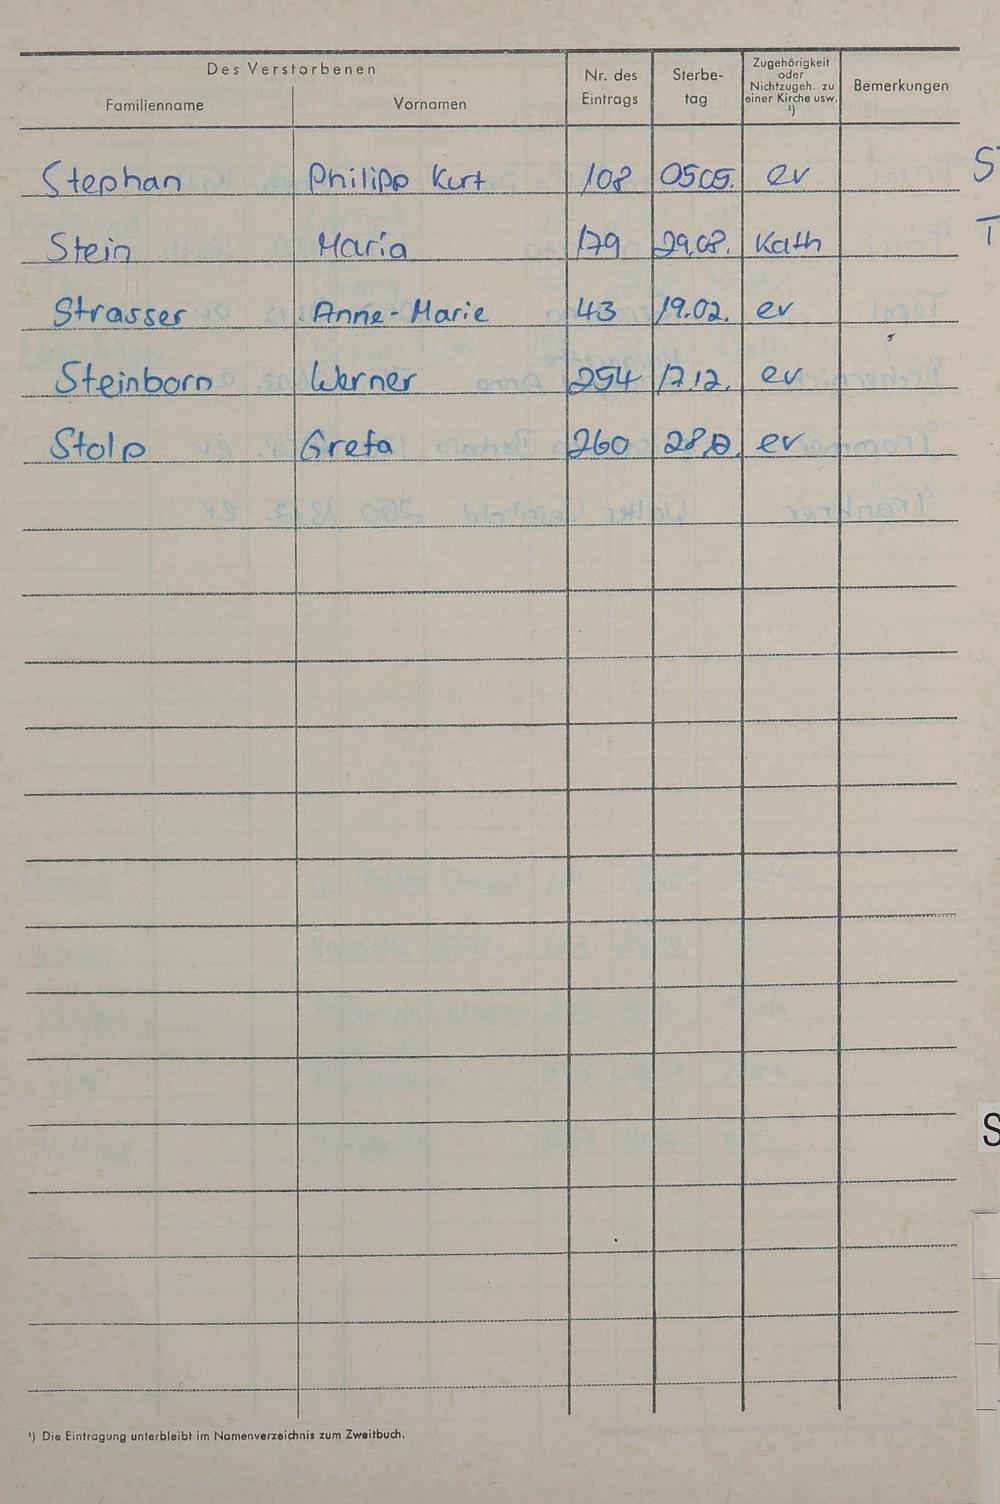 Des Verstorbenen
Familienname Vornamen Nr. des Eintrags Sterbetag Zugehörigkeit oder Nichtzugeh. zu einer Kirche usw. ¹) Bemerkungen
Stephan Philipp Kurt 108 05.05. ev
Stein Maria 179 29.08. Kath
Strasser Anne-Marie 43 19.02. ev
Steinborn Werner 254 17.12. ev
Stolp Greta 260 ev
¹) Die Eintragung unterbleibt im Namenverzeichnis zum Zweitbuch.